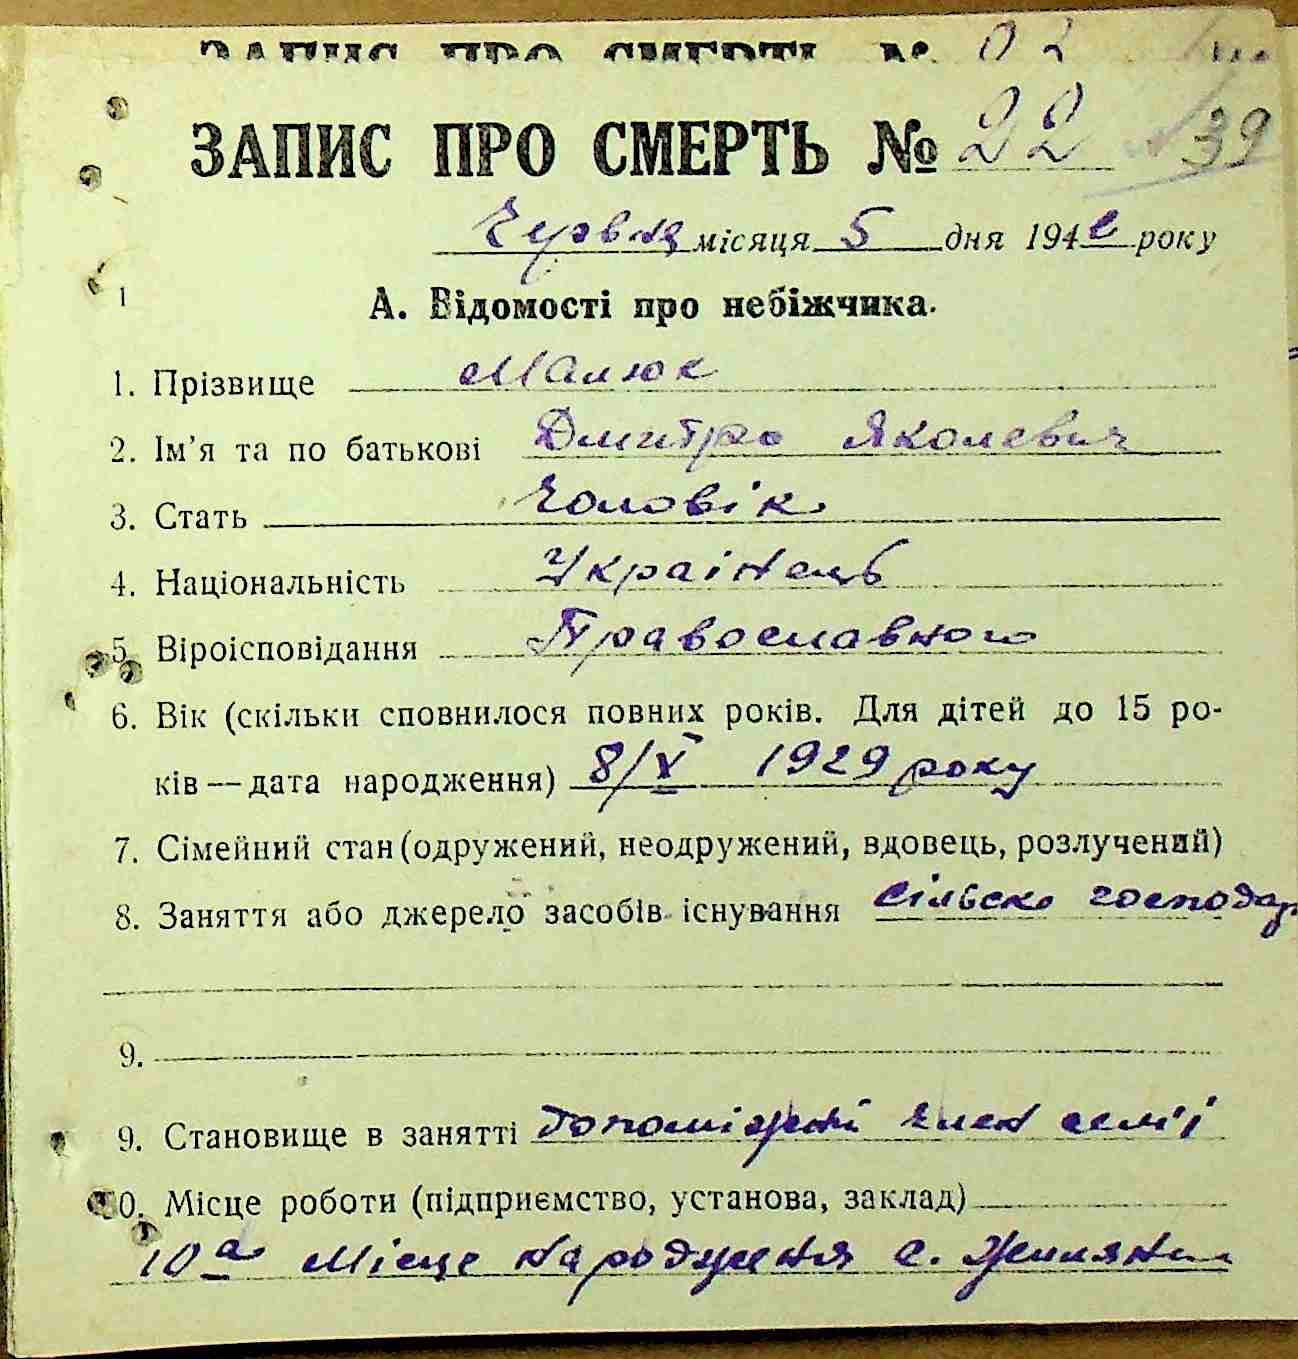 ЗАПИС ПРО СМЕРТЬ №
ЗАПИС ПРО СМЕРТЬ № 22 39
Червня місяця 5 дня 194 року
А. Відомості про небіжчика.
1. Прізвище Малюк
2. Ім'я та по батькові Дмитро Яколевич
3. Стать Чоловік
4. Національність Українець
5. Віроісповідання Православного
6. Вік (скільки сповнилося повних років. Для дітей до 15 ро-
ків — дата народження) 8/V 1929 року
7. Сімейний стан (одружений, неодружений, вдовець, розлучений)
8. Заняття або джерело засобів існування сільско господар
9.
9. Становище в занятті допоміжній член семʼї
10. Місце роботи (підприємство, установа, заклад)
10а Місце народження с.